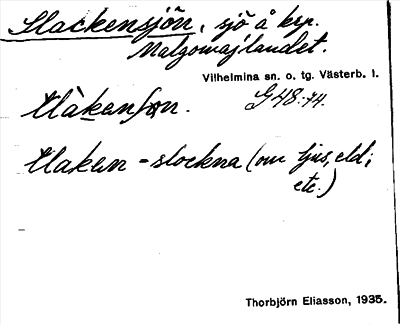 Slackensjön, sjö å ksp.
Malgomajlandet.
Vilhelmina sn. o. tg. Västerb. l.
G48:74.
slockna (om ljus, eld;
etc.)
Thorbjörn Eliasson, 1935.